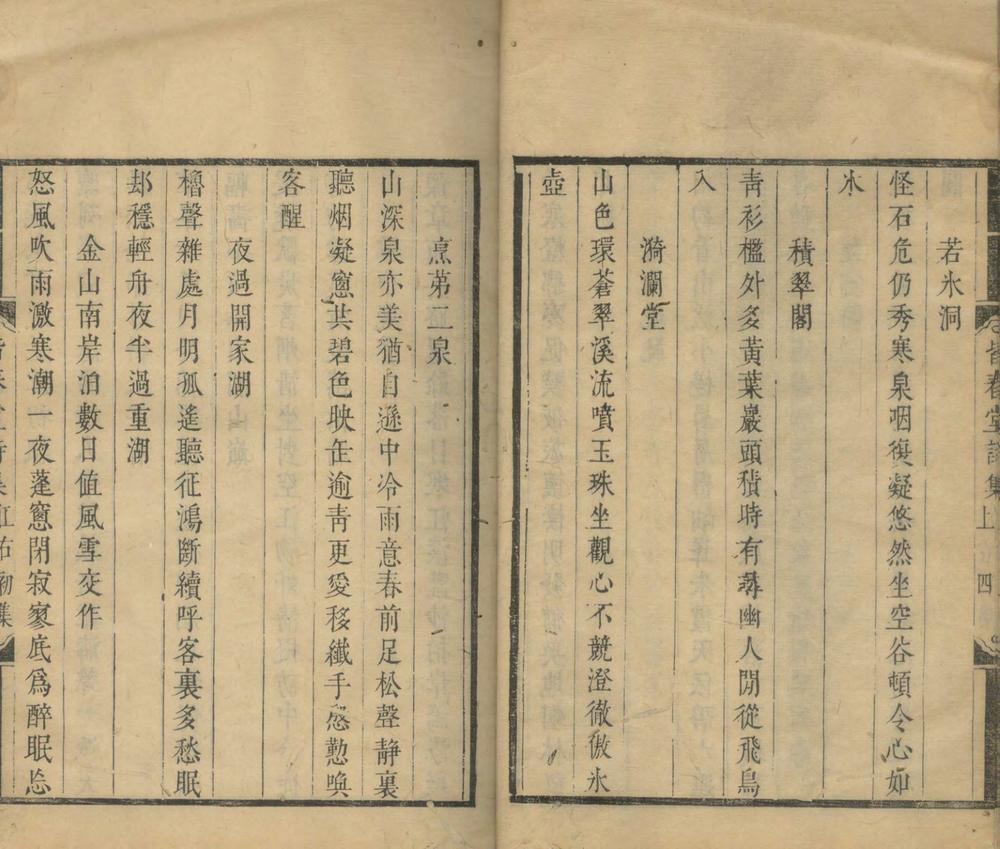 若氷洞
怪石危仍秀寒泉咽復凝悠然坐空谷頓令心如
氷
積翠閣
青衫檻外多黃葉巖頭積時有尋幽人閒從飛鳥
入
漪瀾堂
山色環蒼翠溪流噴玉珠坐觀心不競澄徹傲氷
壺
皆春堂詩集上
四
烹第二泉
山深泉亦美猶自遜中冷雨意春前足松聲静裏
聽烟凝窻共碧色映缶逾青更愛移纖手慇懃喚
客醒
夜過開家湖
櫓聲雜處月明孤遙聽征鴻斷續呼客裏多愁眠
却穩輕舟夜半過重湖
金山南岸泊數日值風雪交作
怒風吹雨激寒潮一夜蓬窻閉寂寥底爲醉眠忘